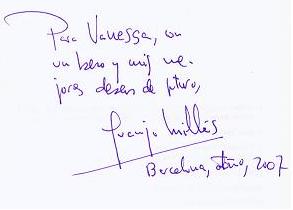 Para Vanessa, con
un beso y mis me-
jores deseos de futuro,
Juanjo Millás
Barcelona, otoño, 2007